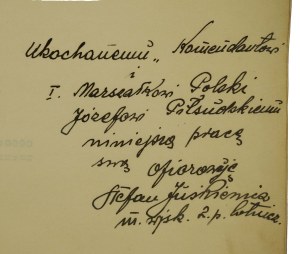 Ukochanemu „Komendantowi
i
I. Marszałkowi Polski
Józefowi Piłsudskiemu
niniejszą pracę
swą ofiaruję
Stefan
m. wjsk. 2. p. lotnicz.